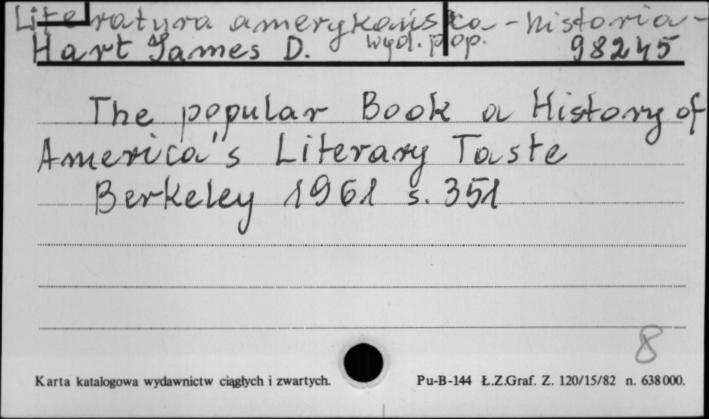 Literatura amerykańska - historia -
wyd. pop.
Hart James D. 98245
The popular Book a History of
America's Literary Taste
Berkeley 1961 s. 351
8
Karta katalogowa wydawnictw ciągłych i zwartych. Pu-B-144 Ł.Z.Graf. Z. 120/15/82 n. 638000.